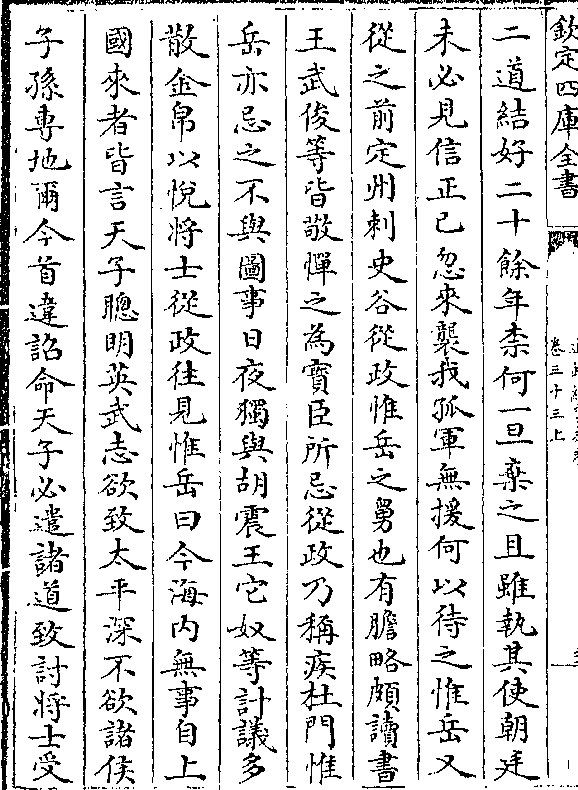 欽定四庫全書
卷三十三上
二道結好二十餘年柰何一旦棄之且雖執其使朝廷
未必見信正己忽來襲我孤軍無援何以待之惟岳又
從之前定州刺史谷從政惟岳之舅也有膽略頗讀書
王武俊等皆敬憚之為寳臣所忌從政乃稱疾杜門惟
岳亦忌之不與圖事日夜獨與胡震王它奴等計議多
散金帛以悅將士從政往見惟岳曰今海内無事自上
國來者皆言天子聰明英武志欲致太平深不欲諸侯
子孫專地爾今首違詔命天子必遣諸道致討將士受